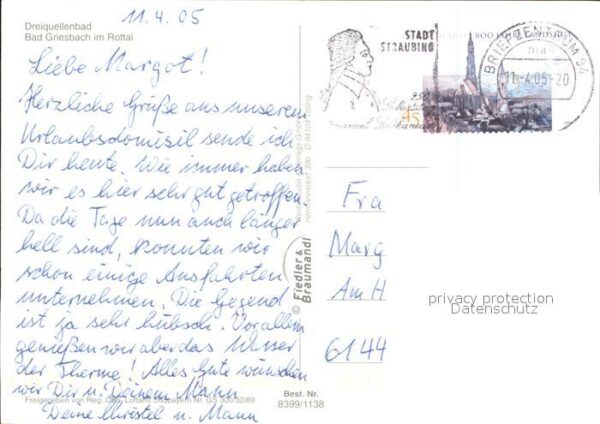 Dreiquellenbad
Bad Griesbach im Rottal
11.4.05
Liebe Margot!
Herzliche Grüße aus unserem
Urlaubsdomisil sende ich
Dir heute. Wie immer haben
wir es hier sehr gut getroffen.
Da die Tage nun auch länger
hell sind, konnten wir
schon einige Ausfahrten
unternehmen. Die Gegend
ist ja sehr hübsch. Vor allem
genießen wir aber das Wasser
der Therme! Alles Gute wünschen
wir Dir u. Deinem Mann
Deine Christel u. Mann
Freigegeben von Reg. Obb. Luftamt Südbayern Nr. GS 300/32/89
© Fiedler & Braumandl
Best. Nr.
8399/1138
STADT
STRAUBING
800
45
BRIEFZENTRUM 94
ma
11.-4.05-20
Fra
Marg
Am H
6144
privacy protection
Datenschutz